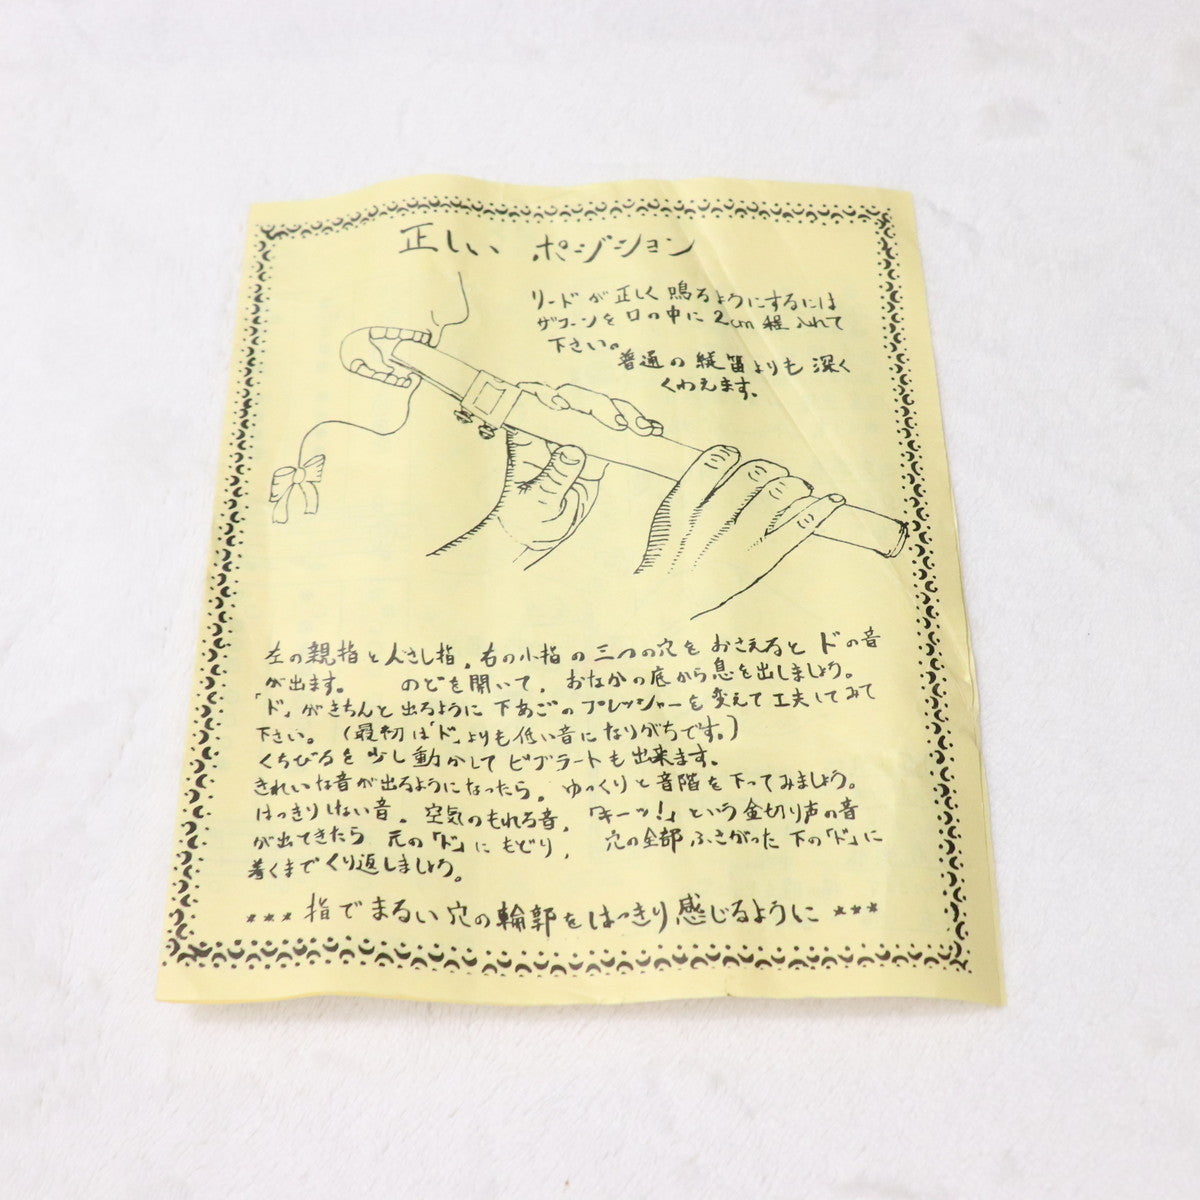 正しい ポジション
リードが正しく鳴るようにするには
ザフーンを口の中に2cm程入れて
下さい。
普通の縦笛よりも深く
くわえます。
左の親指と人さし指、右の小指の三つの穴をおさえるとドの音
が出ます。 のどを開いて、おなかの底から息を出しましょう。
「ド」がきちんと出るように下あごのプレッシャーを変えて工夫してみて
下さい。(最初は「ド」よりも低い音になりがちです。)
くちびるを少し動かしてビブラートも出来ます。
きれいな音が出るようになったら、ゆっくりと音階を下ってみましょう。
はっきりしない音、空気のもれる音、「キーッ!」という金切り声の音
が出てきたら元の「ド」にもどり、 穴の全部ふさがった下の「ド」に
着くまでくり返しましょう。
*** 指でまるい穴の輪郭をはっきり感じるように ***